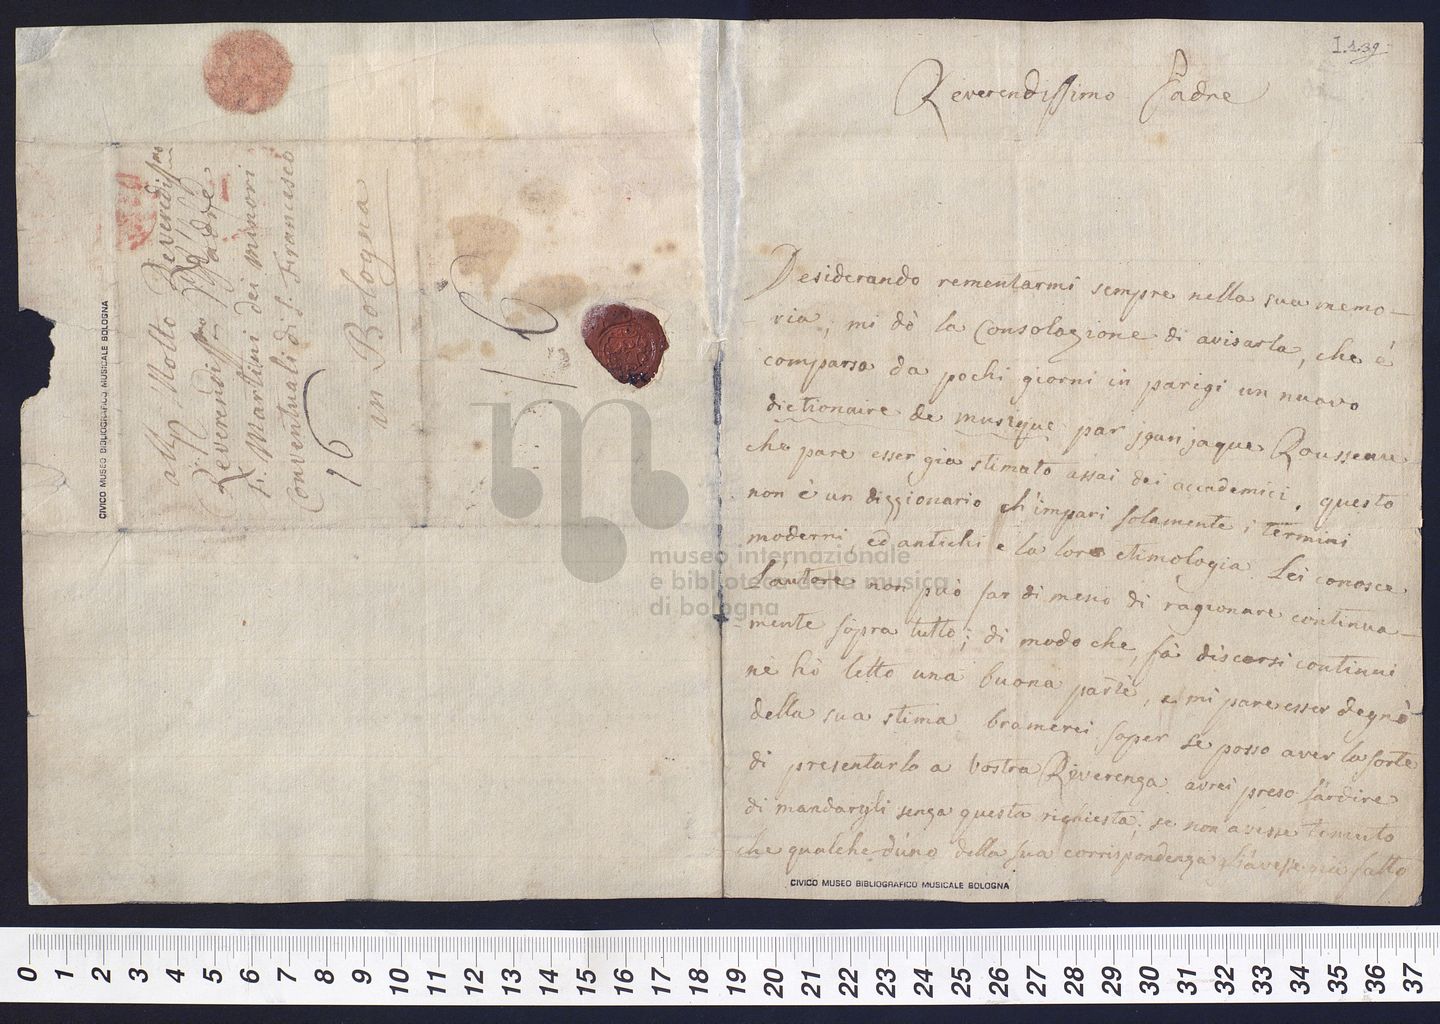 al M. Molto Reverendissmo
Reverendissmo Padre
F. Martini dei minori
Conventuali di S. Francesco
in Bologna
16
16
CIVICO MUSEO BIBLIOGRAFICO MUSICALE BOLOGNA
I.4.39
Reverendissimo Padre
Desiderando rementarmi sempre nella sua memo-
ria, mi dò la Consolazione di avisarla, che è
comparso da pochi giorni in parigi un nuovo
dictionaire de musique par jean jaque Rousseau
che pare esser gia stimato assai dei accademici. questo
non è un dizzionario ch'impari solamente i termini
moderni, ed antichi e la lore etimologia. Lei conosce
l'autore non può far di meno di ragionare continua-
mente sopra tutto; di modo che, fà discorsi continui
nè hò letto una buona parte, e mi pare esser degno
della sua stima bramerei saper se posso aver la sorte
di presentarlo a Vostra Riverenza. avrei preso l'ardire
di mandargli senza questa richiesta, se non avesse temuto
che qualche d'uno della sua corrispondenza gl'avesse già fatto
CIVICO MUSEO BIBLIOGRAFICO MUSICALE BOLOGNA
museo internazionale
e biblioteca della musica
di bologna
0 1 2 3 4 5 6 7 8 9 10 11 12 13 14 15 16 17 18 19 20 21 22 23 24 25 26 27 28 29 30 31 32 33 34 35 36 37